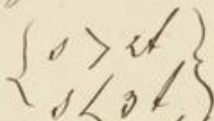 { s > 2t }
{ s < 3t }